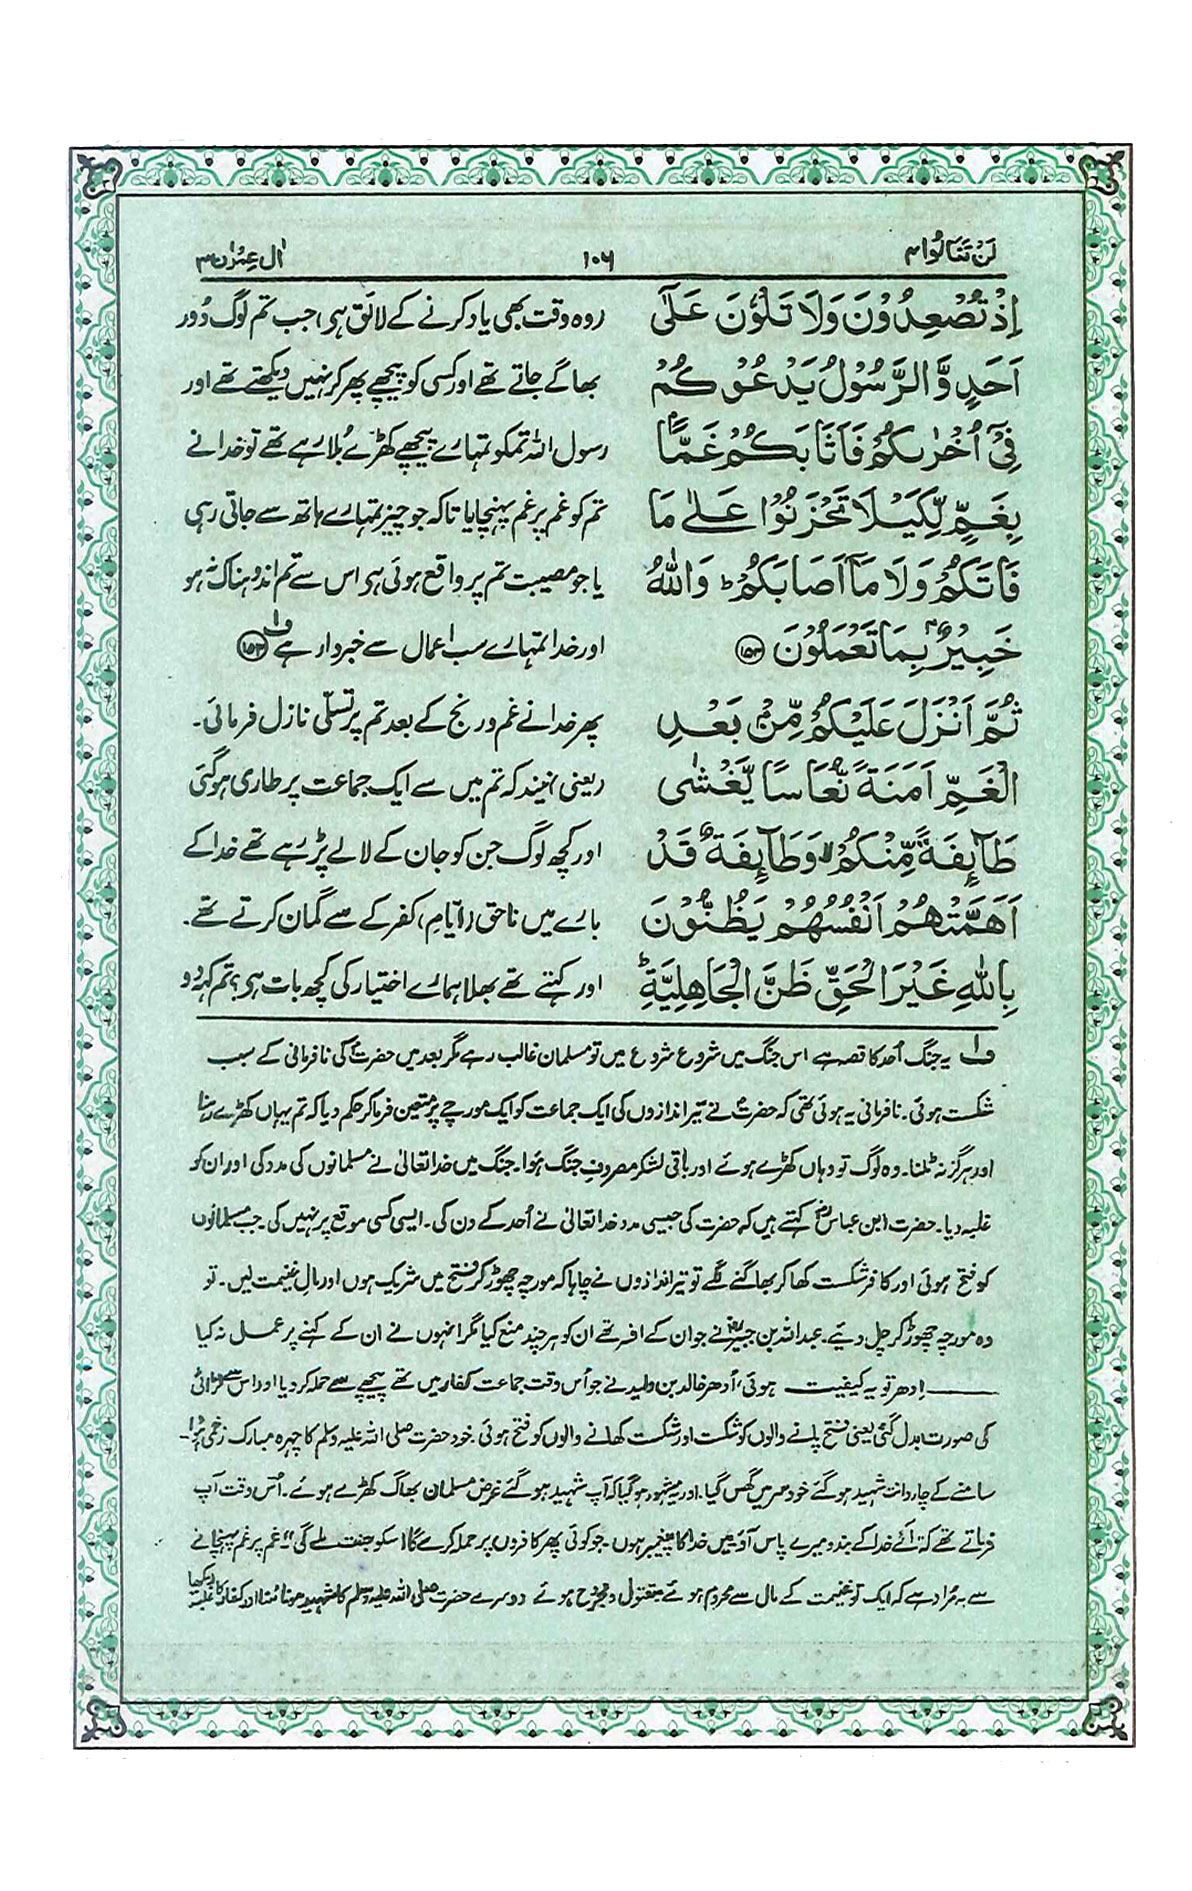 لَنْ تَنَالُوا ۴
۱۰۶
اٰل عِمْرٰن ۳
اِذْ تُصْعِدُوْنَ وَلَا تَلْوٗنَ عَلٰٓى
اَحَدٍ وَّالرَّسُوْلُ يَدْعُوْكُمْ
فِيْٓ اُخْرٰىكُمْ فَاَثَابَكُمْ غَمًّۢا
بِغَمٍّ لِّكَيْلَا تَحْزَنُوْا عَلٰى مَا
فَاتَكُمْ وَلَا مَآ اَصَابَكُمْ ؕ وَاللّٰهُ
خَبِيْرٌۢ بِمَا تَعْمَلُوْنَ ﴿۱۵۳﴾
ثُمَّ اَنْزَلَ عَلَيْكُمْ مِّنْۢ بَعْدِ
الْغَمِّ اَمَنَةً نُّعَاسًا يَّغْشٰى
طَآئِفَةً مِّنْكُمْ ۙ وَطَآئِفَةٌ قَدْ
اَهَمَّتْهُمْ اَنْفُسُهُمْ يَظُنُّوْنَ
بِاللّٰهِ غَيْرَ الْحَقِّ ظَنَّ الْجَاهِلِيَّةِ ؕ
(وہ وقت بھی یاد کرنے کے لائق ہی) جب تم لوگ دُور
بھاگے جاتے تھے اور کسی کو پیچھے پھر کر نہیں دیکھتے تھے اور
رسول اللہ تمکو تمہارے پیچھے کھڑے بُلا رہے تھے تو خدا نے
تم کو غم پر غم پہنچایا تاکہ جو چیز تمہارے ہاتھ سے جاتی رہی
یا جو مصیبت تم پر واقع ہوئی ہی اس سے تم اندوہناک نہ ہو
اور خدا تمہارے سب اعمال سے خبردار ہے ف۱ ﴿۱۵۳﴾
پھر خدا نے غم و رنج کے بعد تم پر تسلّی نازل فرمائی۔
(یعنی) نیند کہ تم میں سے ایک جماعت پر طاری ہو گئی
اور کچھ لوگ جن کو جان کے لالے پڑ رہے تھے خدا کے
بارے میں ناحق (ایّامِ) کفر کے سے گمان کرتے تھے۔
اور کہتے تھے بھلا ہمارے اختیار کی کچھ بات ہی؟ تم کہدو
ف۱ یہ جنگ اُحد کا قصہ ہے اس جنگ میں شروع شروع میں تو مسلمان غالب رہے مگر بعد میں حضرت کی نافرمانی کے سبب
شکست ہوئی۔ نافرمانی یہ ہوئی تھی کہ حضرت نے تیر اندازوں کی ایک جماعت کو ایک مورچے پر متعین فرما کر حکم دیا کہ تم یہاں کھڑے رہنا
اور ہرگز نہ ٹلنا۔ وہ لوگ تو وہاں کھڑے ہوئے اور باقی لشکر مصروفِ جنگ ہوا۔ جنگ میں خدا تعالیٰ نے مسلمانوں کی مدد کی اور ان کو
غلبہ دیا۔ حضرت ابن عباسؓ کہتے ہیں کہ حضرت کی جیسی مدد خدا تعالیٰ نے اُحد کے دن کی۔ ایسی کسی موقع پر نہیں کی۔ جب مسلمانوں
کو فتح ہوئی اور کافر شکست کھا کر بھاگنے لگے تو تیر اندازوں نے چاہا کہ مورچہ چھوڑ کر فتح میں شریک ہوں اور مالِ غنیمت لیں۔ تو
وہ مورچہ چھوڑ کر چل دیئے۔ عبداللہ بن جبیرؓ نے جو ان کے افسر تھے ان کو ہر چند منع کیا مگر انہوں نے ان کے کہنے پر عمل نہ کیا
اِدھر تو یہ کیفیت ہوئی، اُدھر خالد بن ولید نے جو اُس وقت جماعت کفار میں تھے پیچھے سے حملہ کر دیا اور اس سے لڑائی
کی صورت بدل گئی یعنی فتح پانے والوں کو شکست اور شکست کھانے والوں کو فتح ہوئی۔ خود حضرت صلی اللہ علیہ وسلم کا چہرہ مبارک زخمی ہوا۔
سامنے کے چار دانت شہید ہو گئے خود سر میں گھس گیا۔ اور مشہور ہو گیا کہ آپ شہید ہو گئے غرض مسلمان بھاگ کھڑے ہوئے۔ اُس وقت آپ
فرماتے تھے کہ اَے خدا کے بندو میرے پاس آؤ میں خدا کا پیغمبر ہوں۔ جو کوئی پھر کافروں پر حملہ کرے گا اسکو جنت ملے گی" غم پر غم پہنچانے
سے یہ مُراد ہے کہ ایک تو غنیمت کے مال سے محروم ہوئے مقتول و مجروح ہوئے دوسرے حضرت صلی اللہ علیہ وسلم کا شہید ہونا سُنا اور کفار کا غلبہ دیکھا